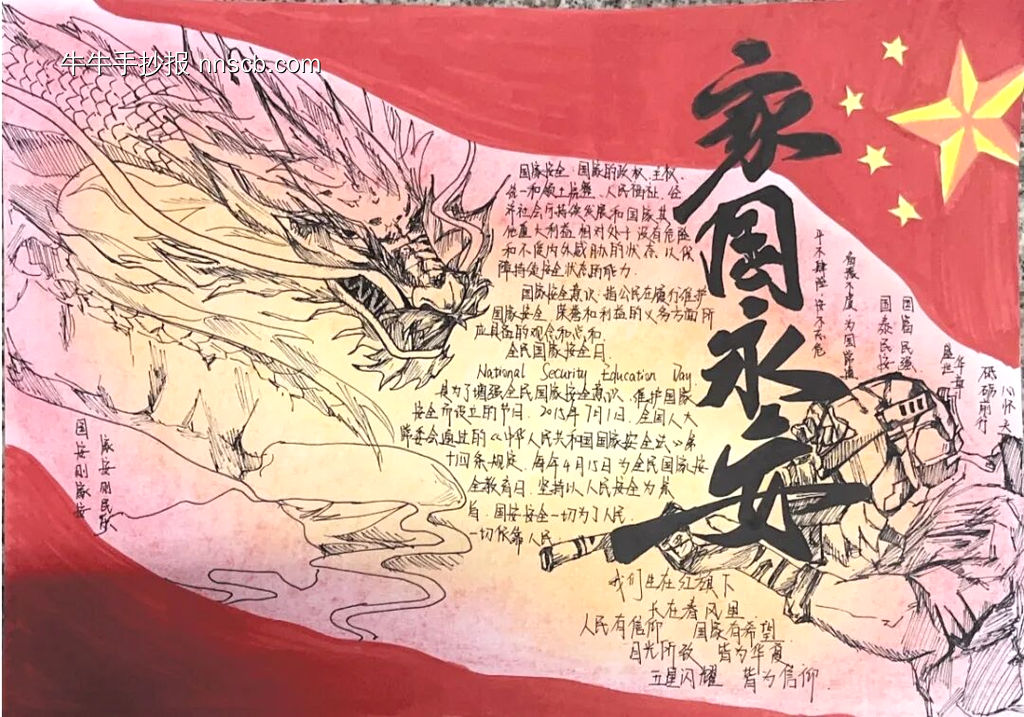 牛牛手抄报 nnscb.com
家国永安
国家安全:国家的政权、主权、
统一和领土完整、人民福祉、经
济社会可持续发展和国家其
他重大利益相对处于没有危险
和不受内外威胁的状态,以及保
障持续安全状态的能力.
国家安全意识:指公民在履行维护
国家安全、荣誉和利益的义务方面所
应具备的观念和
全民国家安全日
National Security Education Day
是为了增强全民国家安全意识,维护国家
安全而设立的节日.2015年7月1日,全国人大
常委会通过的《中华人民共和国国家安全法》第
十四条规定,每年4月15日为全民国家安
全教育日.坚持以人民安全为宗
旨,国家安全一切为了人民,
一切依靠人民
我们生在红旗下
长在春风里
人民有信仰 国家有希望
目光所致 皆为华夏
五星闪耀 皆为信仰.
国泰民安
国富民强
盛世
华章
砥砺前行
心怀大
家安则民
国安则家安